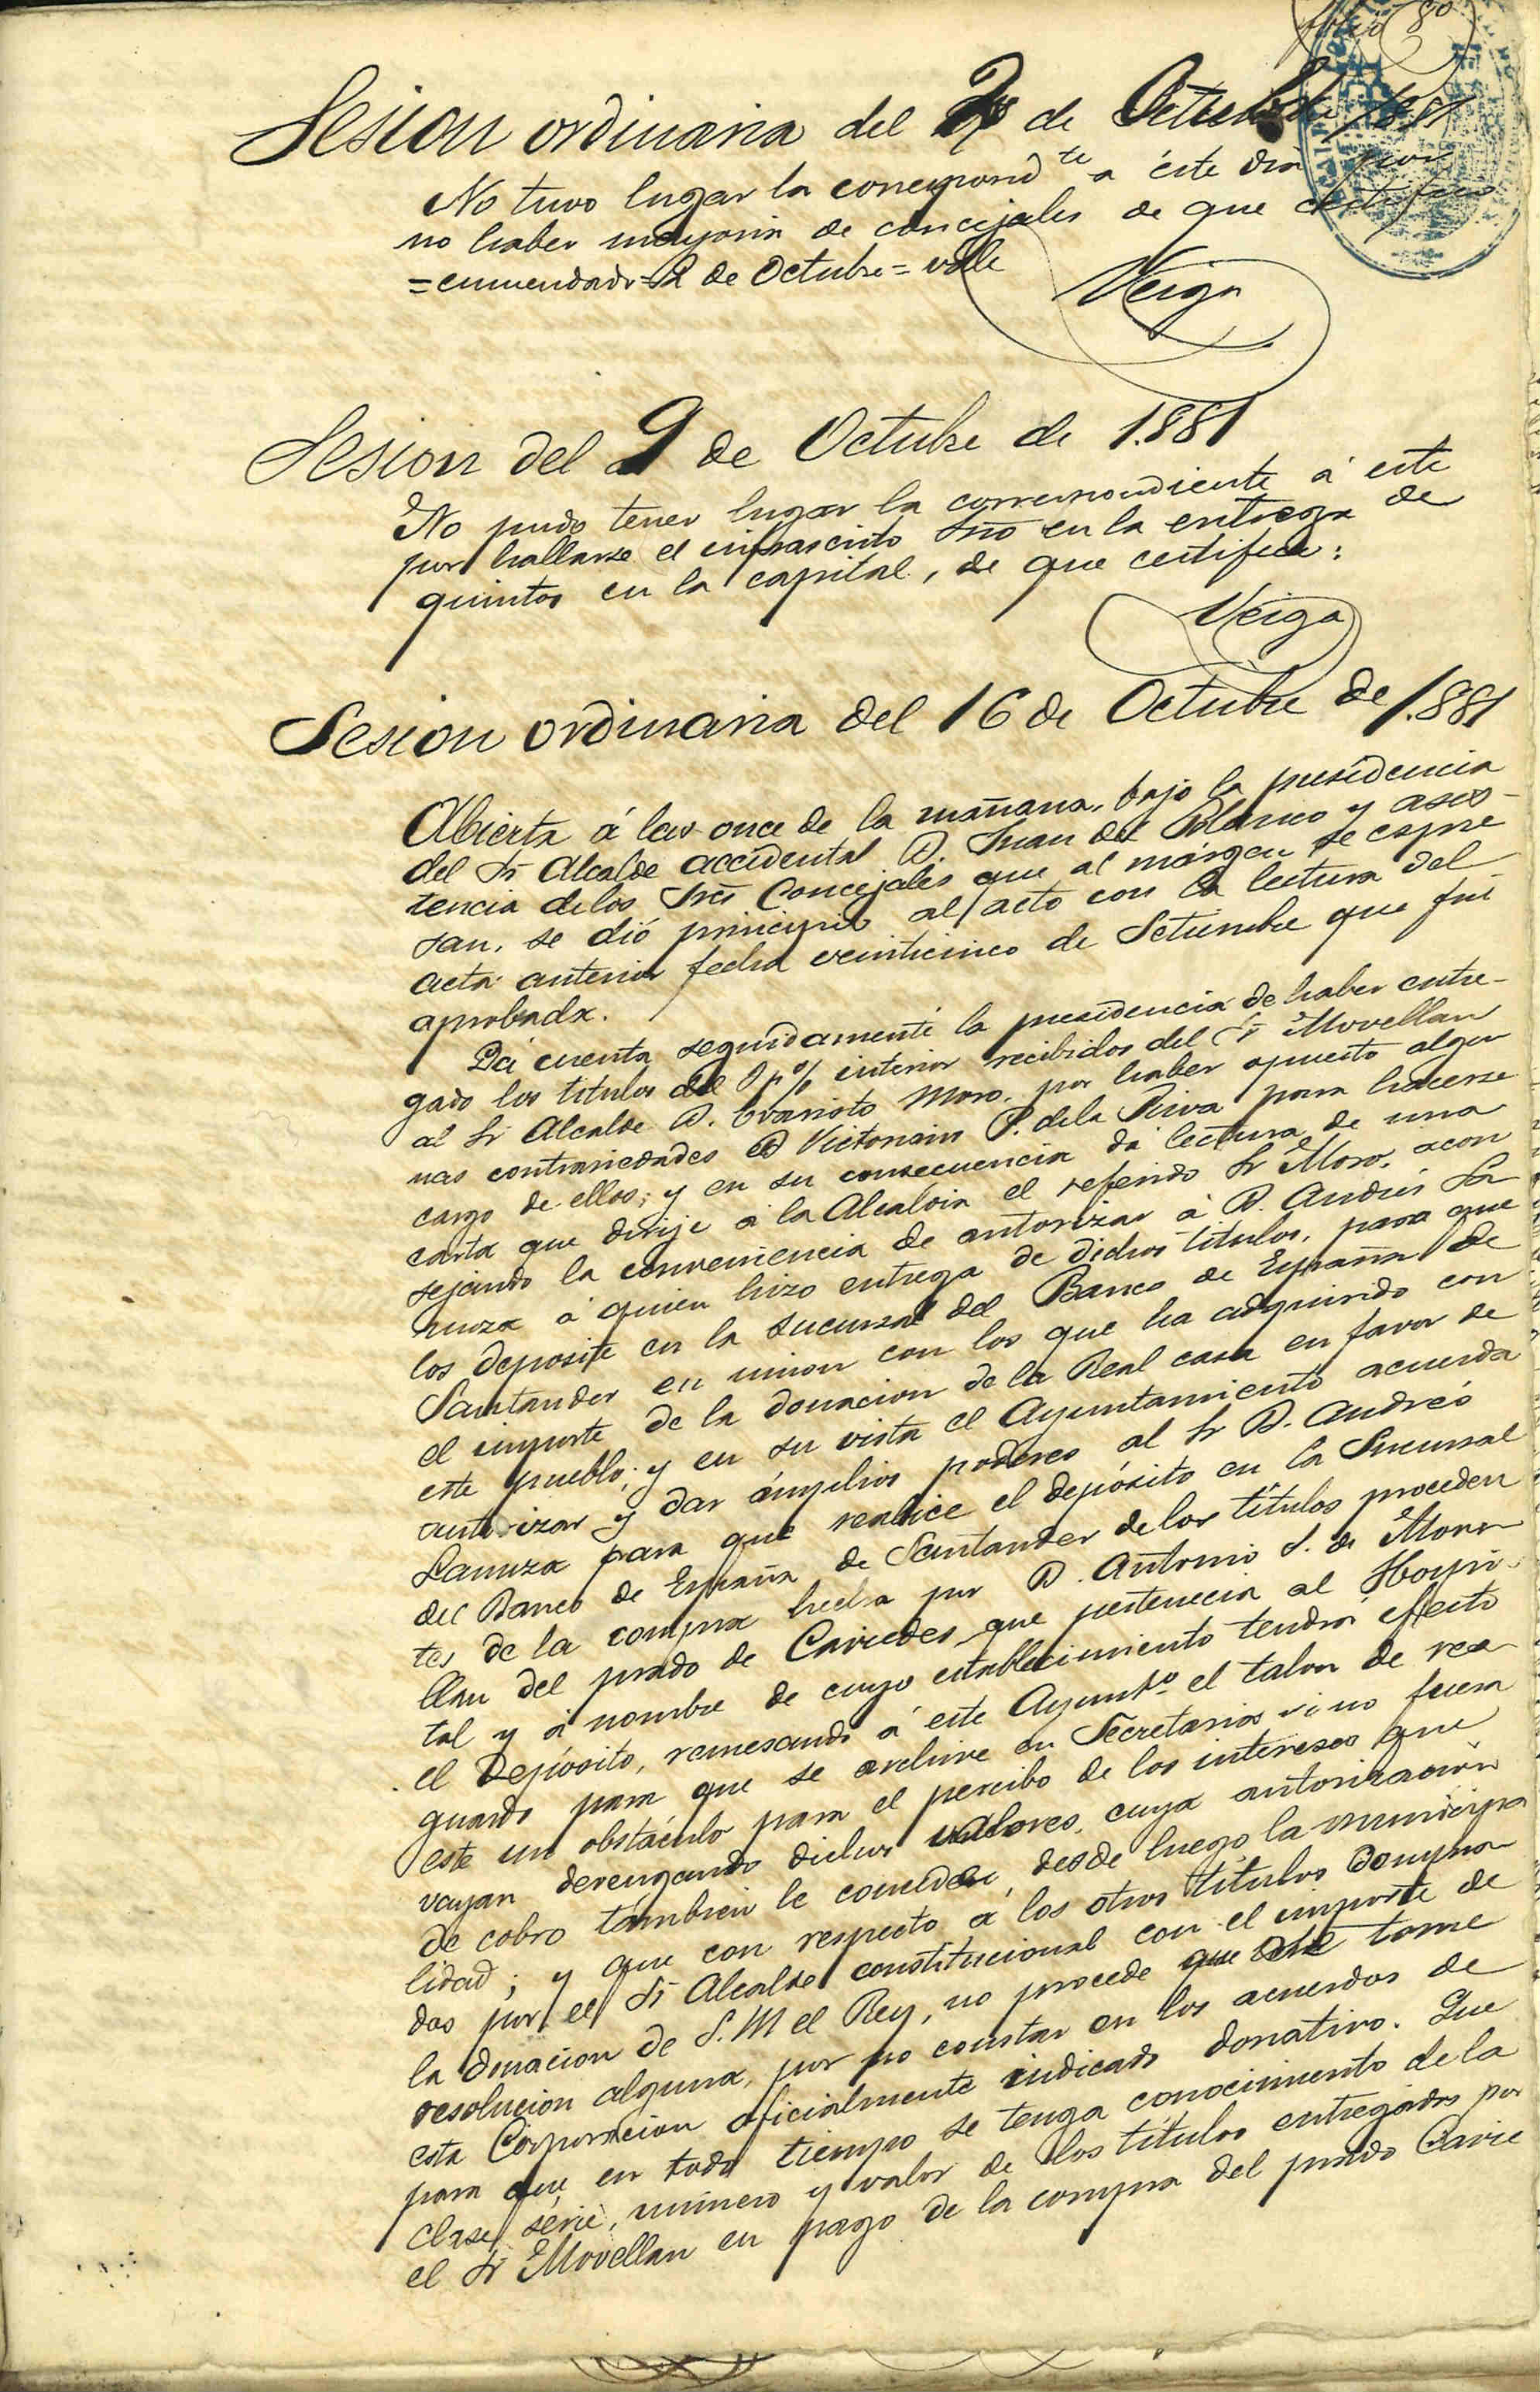 folio 80
Sesion ordinaria del 2 de Octubre de 1881
No tuvo lugar la correspond.te a éste dia por
no haber mayoria de concejales de que certifico
=enmendado=2 de Octubre=vale
Veiga
Sesion del 9 de Octubre de 1.881
No pudo tener lugar la correspondiente á este
por hallarse el infrascrito Srio en la entrega de
quintos en la capital, de que certifica:
Veiga
Sesion ordinaria del 16 de Octubre de 1.881
Abierta á las once de la mañana, bajo la presidencia
del Sr Alcalde accidental D. Juan del Blanco y asis-
tencia de los Sres Concejales que al márgen se espre
san, se dió principio al acto con la lectura del
acta anterior fecha veinticinco de Setiembre que fué
aprobada.
Dá cuenta seguidamente la presidencia de haber entre-
gado los titulos del 3 p% interior recibidos del Sr Movellan
al Sr Alcalde D. Evaristo Moro, por haber opuesto algu
nas contrariedades D Victoriano P. de la Riva para hacerse
cargo de ellos; y en su consecuencia dá lectura de una
carta que dirije á la Alcaldia el referido Sr Moro, acon
sejando la conveniencia de autorizar á D. Andrés La
nuza á quien hizo entrega de dichos titulos, para que
los deposite en la sucursal del Banco de España de
Santander en union con los que ha adquirido con
el importe de la donacion de la Real casa en favor de
este pueblo; y en su vista el Ayuntamiento acuerda
autorizar y dar ámplios poderes al Sr D. Andrés
Lanuza para que realice el depósito en la Sucursal
del Banco de España de Santander de los titulos proceden
tes de la compra hecha por D. Antonio S. de Move
llan del prado de Caviedes que pertenecia al Hospi-
tal y á nombre de cuyo establecimiento tendrá efecto
el Depósito, remesando á este Ayunt.º el talon de res
guardo para que se archive en Secretaria si no fuera
este un obstáculo para el percibo de los intereses que
vayan devengando dichos valores, cuya autorizacion
de cobro tambien le concede desde luego la municipa
lidad; y que con respecto á los otros titulos compra
dos por el Sr Alcalde constitucional con el importe de
la donacion de S. M el Rey, no procede que se tome
resolucion alguna, por no constar en los acuerdos de
esta Corporacion oficialmente indicado donativo. Que
para que en todo tiempo se tenga conocimiento de la
clase, série, número y valor de los titulos entregados por
el Sr Movellan en pago de la compra del prado Cavie